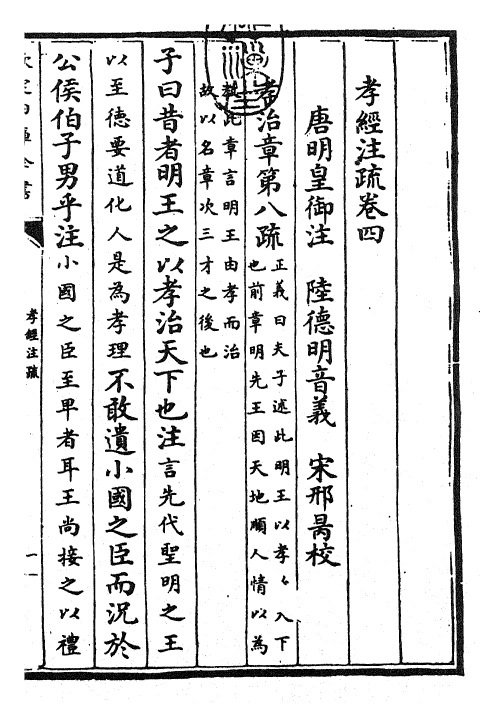 孝經注疏卷四
唐明皇御注　陸德明音義　宋邢昺校
孝治章第八疏
正義曰夫子述此明王以孝下
也前章明先王因天地順人情以為
教此章言明王由孝而治
故以名章次三才之後也
子曰昔者明王之以孝治天下也注言先代聖明之王
以至德要道化人是為孝理不敢遺小國之臣而況於
公侯伯子男乎注小國之臣至卑者耳王尚接之以禮
欽定四庫全書
孝經注疏
一